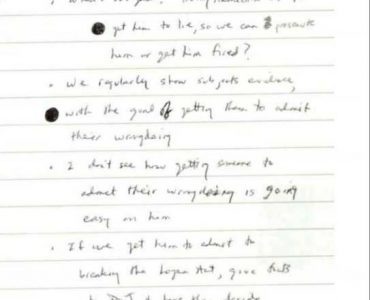 get him to lie, so we can prosecute
him or get him fired?
· We regularly show subjects evidence,
with the goal of getting them to admit
their wrongdoing
· I don't see how getting someone to
admit their wrongdoing is going
easy on him
· If we get him to admit to
breaking the Logan Act, give facts
to DOJ & have them decide